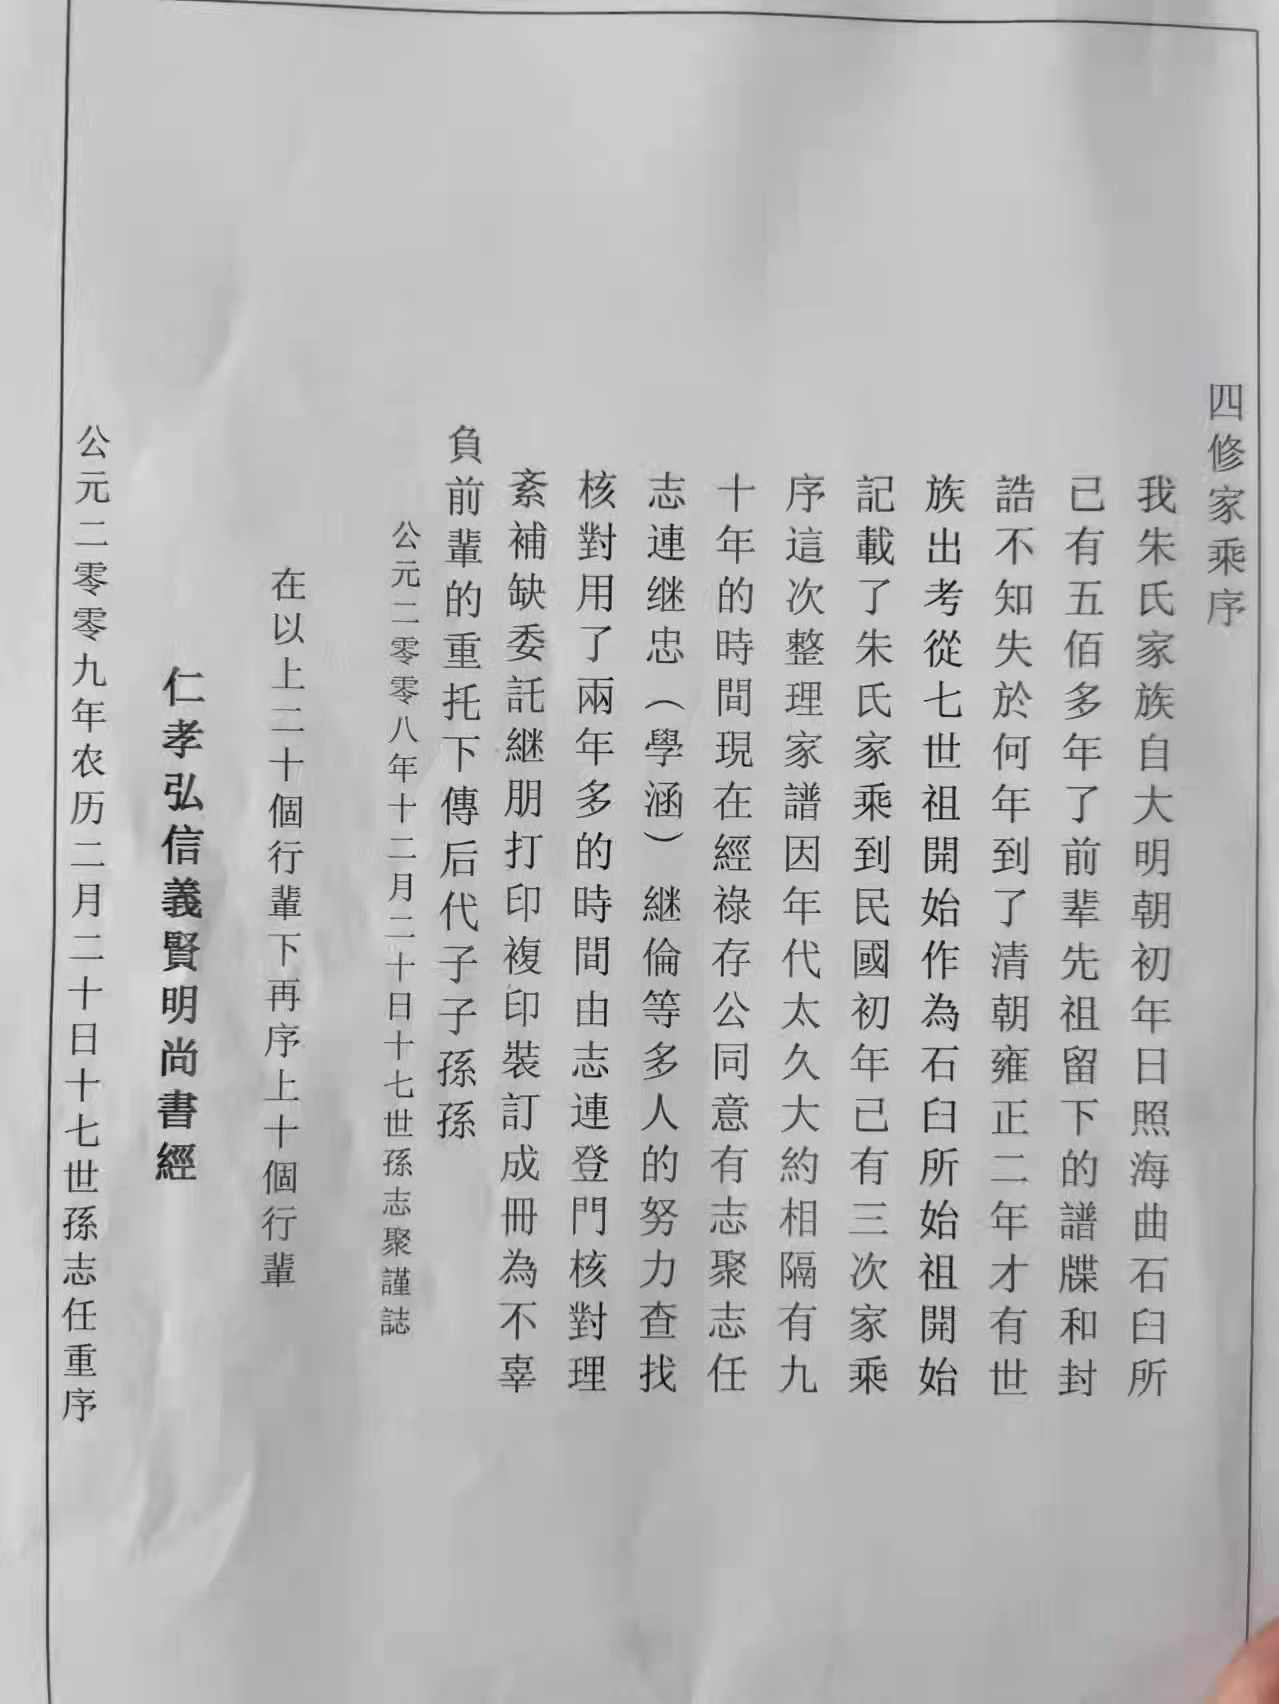 四修家乘序
我朱氏家族自大明朝初年日照海曲石臼所
已有五佰多年了前辈先祖留下的譜牒和封
誥不知失於何年到了清朝雍正二年才有世
族出考從七世祖開始作為石臼所始祖開始
記載了朱氏家乘到民國初年已有三次家乘
序這次整理家譜因年代太久大約相隔有九
十年的時間現在經祿存公同意有志聚志任
志連继忠（學涵）継倫等多人的努力查找
核對用了兩年多的時間由志連登門核對理
紊補缺委託継朋打印複印裝訂成冊為不辜
負前輩的重托下傳后代子子孫孫
公元二零零八年十二月二十日十七世孫志聚謹誌
在以上二十個行輩下再序上十個行輩
仁孝弘信義賢明尚書經
公元二零零九年农历二月二十日十七世孫志任重序